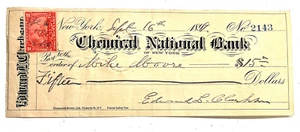 New York, Sept 16th 189 No. 2143
Chemical National Bank
OF NEW YORK
Pay to the order of Mike Moore $15
Fifteen Dollars
Edward L. Clarkson